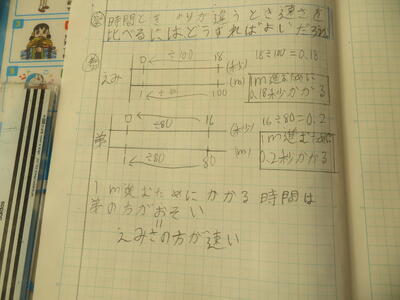 時間ときょりが違うとき速さを
比べるには、どうすればよいだろう
÷100
0 18 (秒) 18÷100=0.18
えみ
0 1 100 (m) 1m進むために
÷100 0.18秒かかる
÷80
0 16 (秒) 16÷80=0.2
弟 (m) 1m進むために
÷80 80 0.2秒かかる
1m進むためにかかる時間は
弟の方がおそい
えみさの方が速い